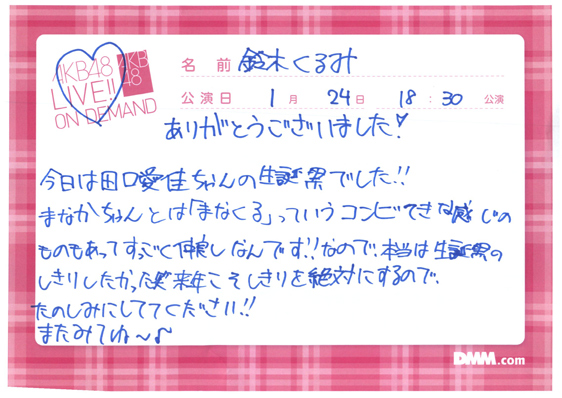 AKB48
LIVE!!
ON DEMAND
AKB
48
名前 鈴木くるみ
公演日 1月24日 18:30公演
ありがとうございました!
今日は田口愛佳ちゃんの生誕祭でした!!
まなかちゃんとは「まなくる」っていうコンビてきな感じの
ものもあってすっごく仲良しなんです!!なので、本当は生誕祭の
しきりしたかった 来年こそしきりを絶対にするので、
たのしみにしててください!!
またみてね〜♪
DMM.com